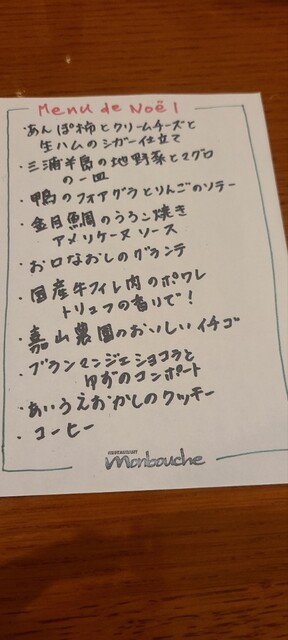 Menu de Noël
・あんぽ柿とクリームチーズと
生ハムのシガー仕立て
・三浦半島の地野菜とマグロ
の一皿
・鴨のフォアグラとりんごのソテー
・金目鯛のうろこ焼き
アメリケーヌソース
・お口なおしのグランテ
・国産牛フィレ肉のポワレ
トリュフの香りで!
・嘉山農園のおいしいイチゴ
・ブランマンジェショコラと
ゆずのコンポート
・あいうえおかしのクッキー
・コーヒー
RESTAURANT
Monbouche